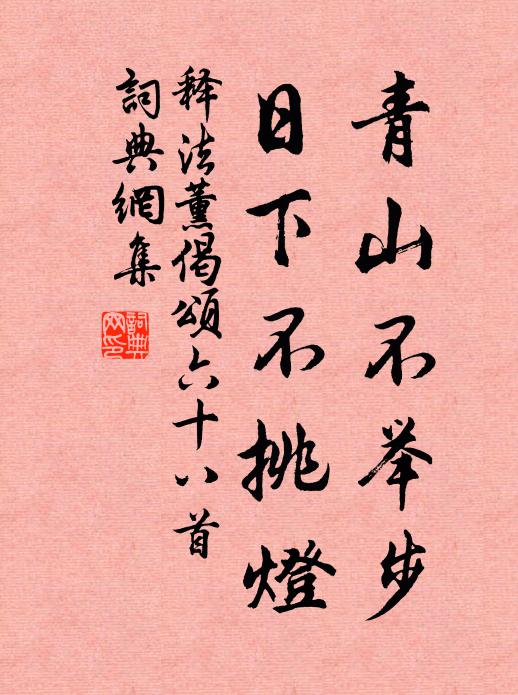 青山不举步
日下不挑燈
释法薰偈頌六十八首
詞典網集
詞典网印